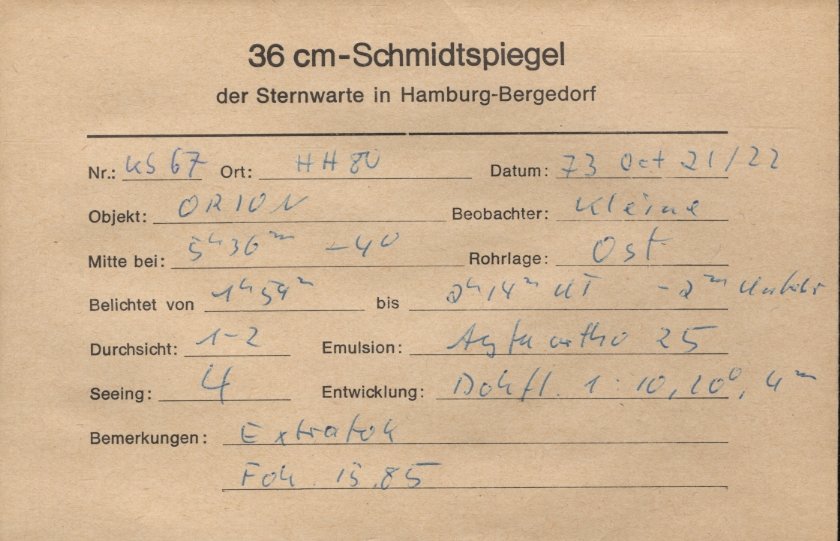 36 cm-Schmidtspiegel
der Sternwarte in Hamburg-Bergedorf
Nr.: KS 67 Ort: HH 80 Datum: 73 Oct 21/22
Objekt: ORION Beobachter: Kleine
Mitte bei: 5h36m -4° Rohrlage: Ost
Belichtet von 1h59m bis 2h14m UT - 2m
Durchsicht: 1-2 Emulsion: Agfa ortho 25
Seeing: 4 Entwicklung: Dokfl. 1:10, 20°, 4m
Bemerkungen: Extrafok
Fok. 13.85